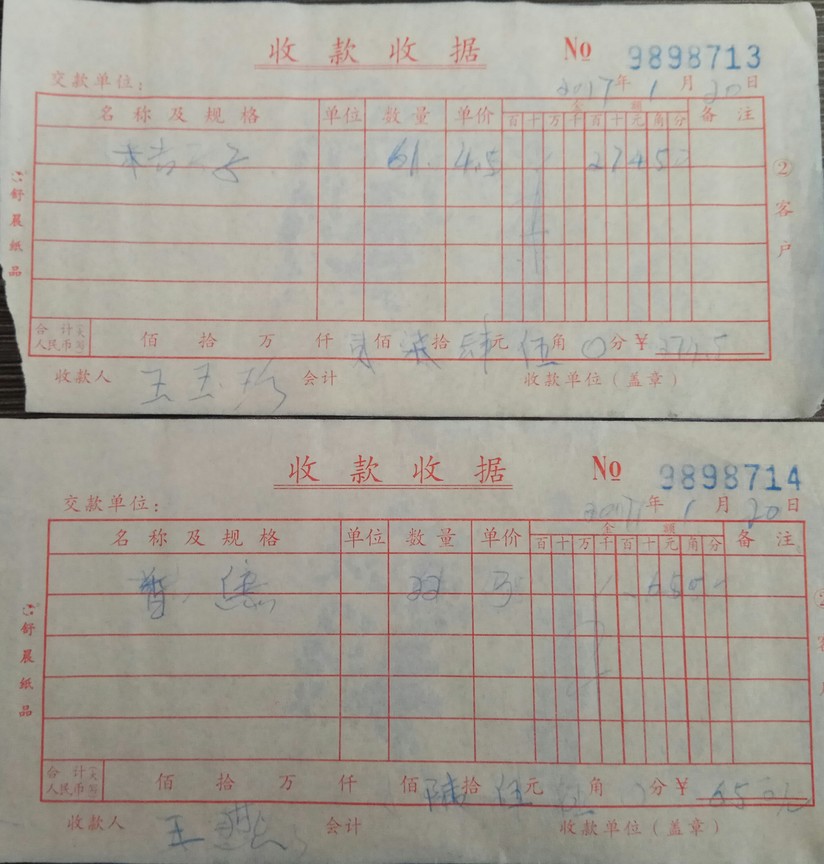 收款收据 No 9898713
交款单位: 2017年1月20日
名称及规格 单位 数量 单价 金额 备注
百十万千百十元角分
61 4.5 27450
②客户
舒晨纸品
合计人民币(大写) 佰 拾 万 仟 贰佰柒拾肆元伍角0分¥274.5
收款人 王玉珍 会计 收款单位(盖章)
收款收据 No 9898714
交款单位: 2017年1月20日
名称及规格 单位 数量 单价 金额 备注
百十万千百十元角分
舒晨纸品
合计人民币(大写) 佰 拾 万 仟 佰陆拾伍元伍角 分¥
收款人 王 会计 收款单位(盖章)